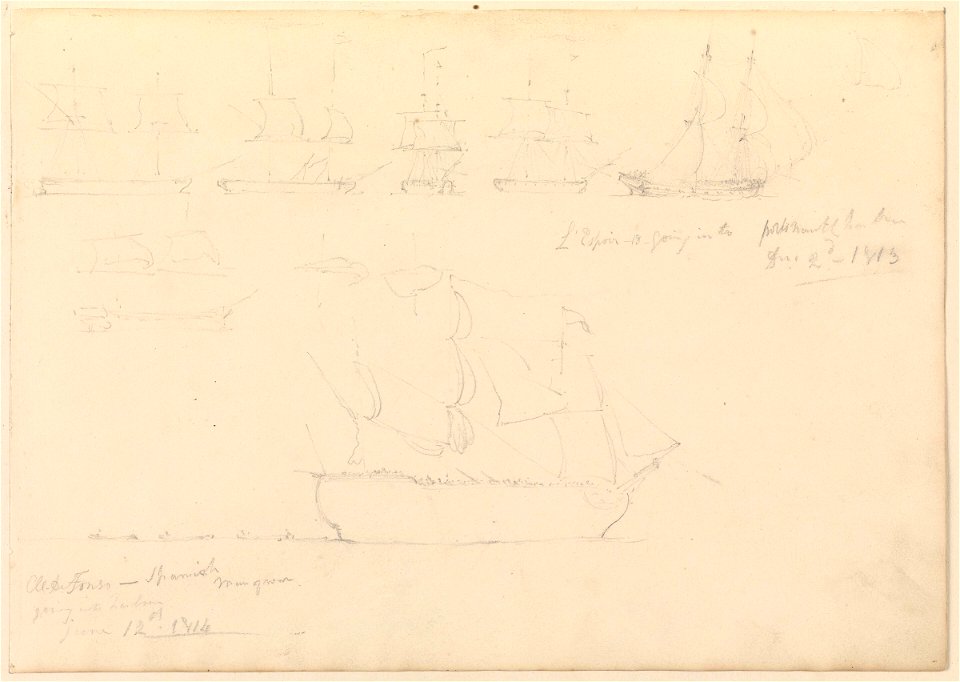 L'Espoir - 18 - going into Portsmouth harbour
2d - 1813
Spanish
Man of war.
going into harbour
June 12th 1814